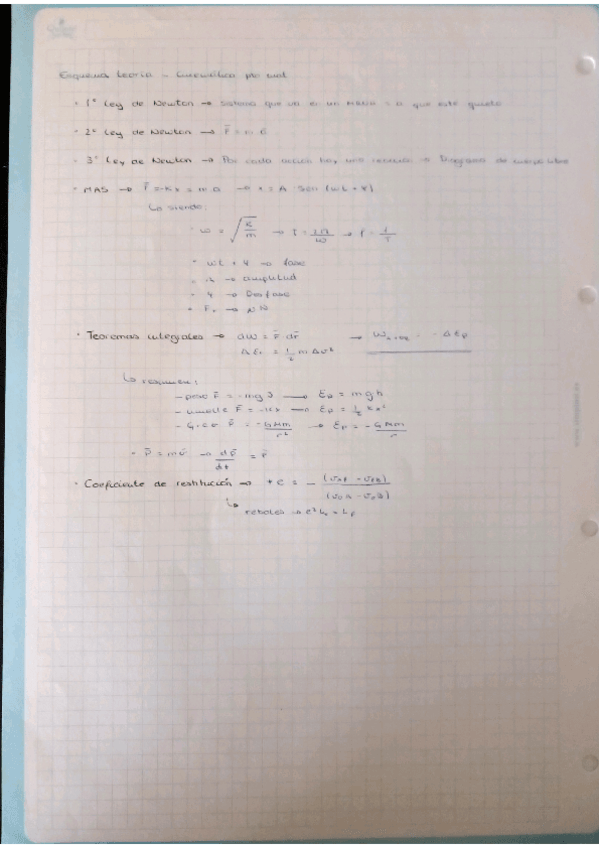 Esquema teoría - Cinemática pto mat
· 1ª Ley de Newton → Sistema que va en un = a que esté quieto
· 2ª Ley de Newton → F̄ = m ā
· 3ª Ley de Newton → Por cada acción hay una reacción → Diagrama de cuerpo libre
· MAS → F = -Kx = m a → x = A · Sen (ωt + φ)
↳ siendo:
· ω = √(K/m) → T = 2π/ω → f = 1/T
· ωt + φ → fase
→ amplitud
· φ → Desfase
· Teoremas integrales → dW = F̄ · dr̄ → = - ΔEp
ΔEc = 1/2 m Δv²
↳ resumen:
- peso F̄ = -mg → Ep = m g h
- muelle F̄ = -Kx → Ep = 1/2 Kx²
- F̄ = -GMm/r² → Ep = -GMm/r
· P̄ = m v̄ → dp̄/dt = F̄
· Coeficiente de restitución → e = - (vfA - vfB)/(v0A - v0B)
↳ rebotes → e² h₀ = hf